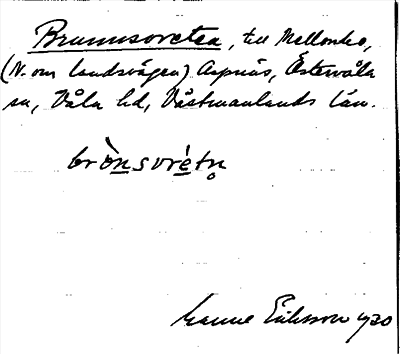 Brunnsvreten, till Mellonbo,
(N. om landsvägen) Aspnäs, Östervåla
sn, Våla hd, Västmanlands län.
brònsvrètn̥
Manne Eriksson 1930